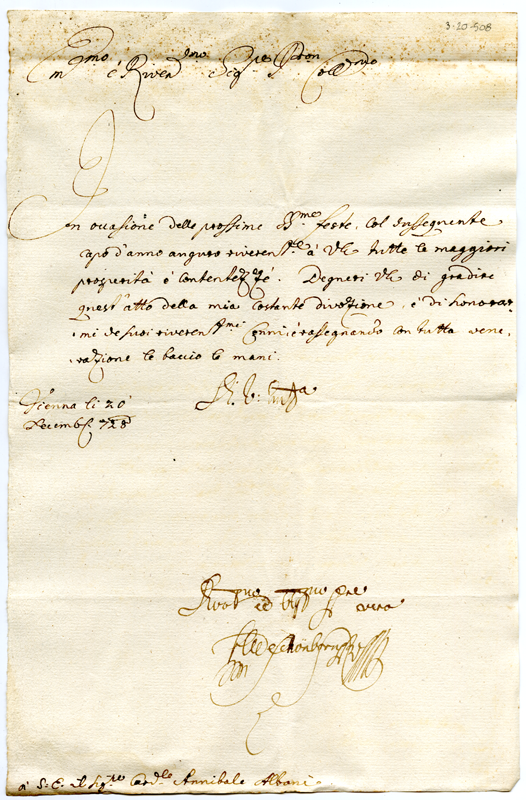 3-20-508
Em.mo e River.mo Sig.re Pron Coll.mo
In occasione delle prossime S.me feste, col susseguente
capo d'anno auguro riverent.te à V.E. tutte le maggiori
prosperità e contentezze. Degnerà V.E. di gradire
quest'atto della mia costante divozione, e di honorar-
mi de suoi riverent.mi e rassegnando con tutta vene-
razione le baccio le mani.
Vienna li 20
Decemb. 728
Di V. Em.za
ed
vero
à S. E. il Sig.re Card.le Annibale Albani.